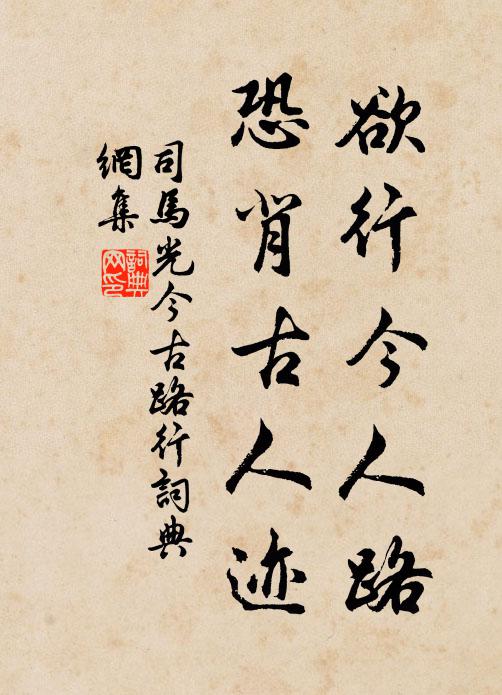 欲行今人路
恐背古人迹
司馬光今古路行詞典
網集
詞典
网印